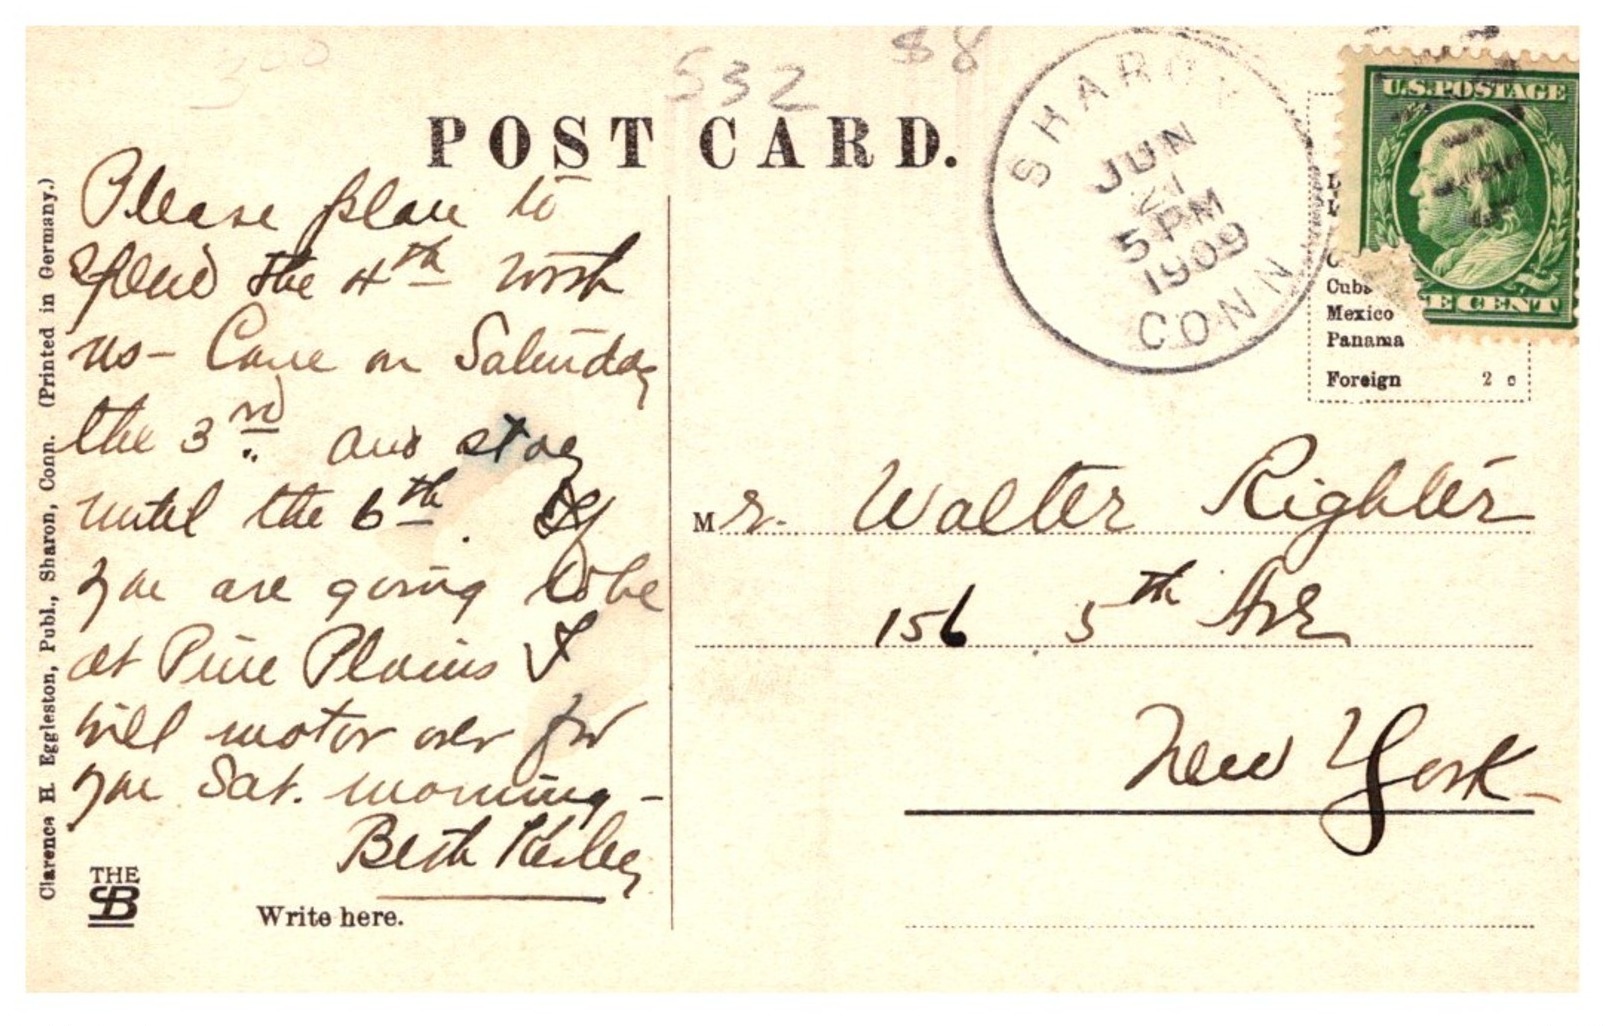 300
532
$8
POST CARD.
Please plan to
spend the 4th with
us - Come on Saturday
the 3rd. and stay
until the 6th. If
you are going to be
at Pine Plains I
will motor over for
you Sat. morning -
Beth
Write here.
THE
SB
Clarence H. Eggleston, Publ., Sharon, Conn. (Printed in Germany.)
SHARON
JUN
21
5 PM
1909
CONN
U.S. POSTAGE
E CENT
Cuba
Mexico
Panama
Foreign 2 c
Mr. Walter Righter
156 5th Ave
New York -